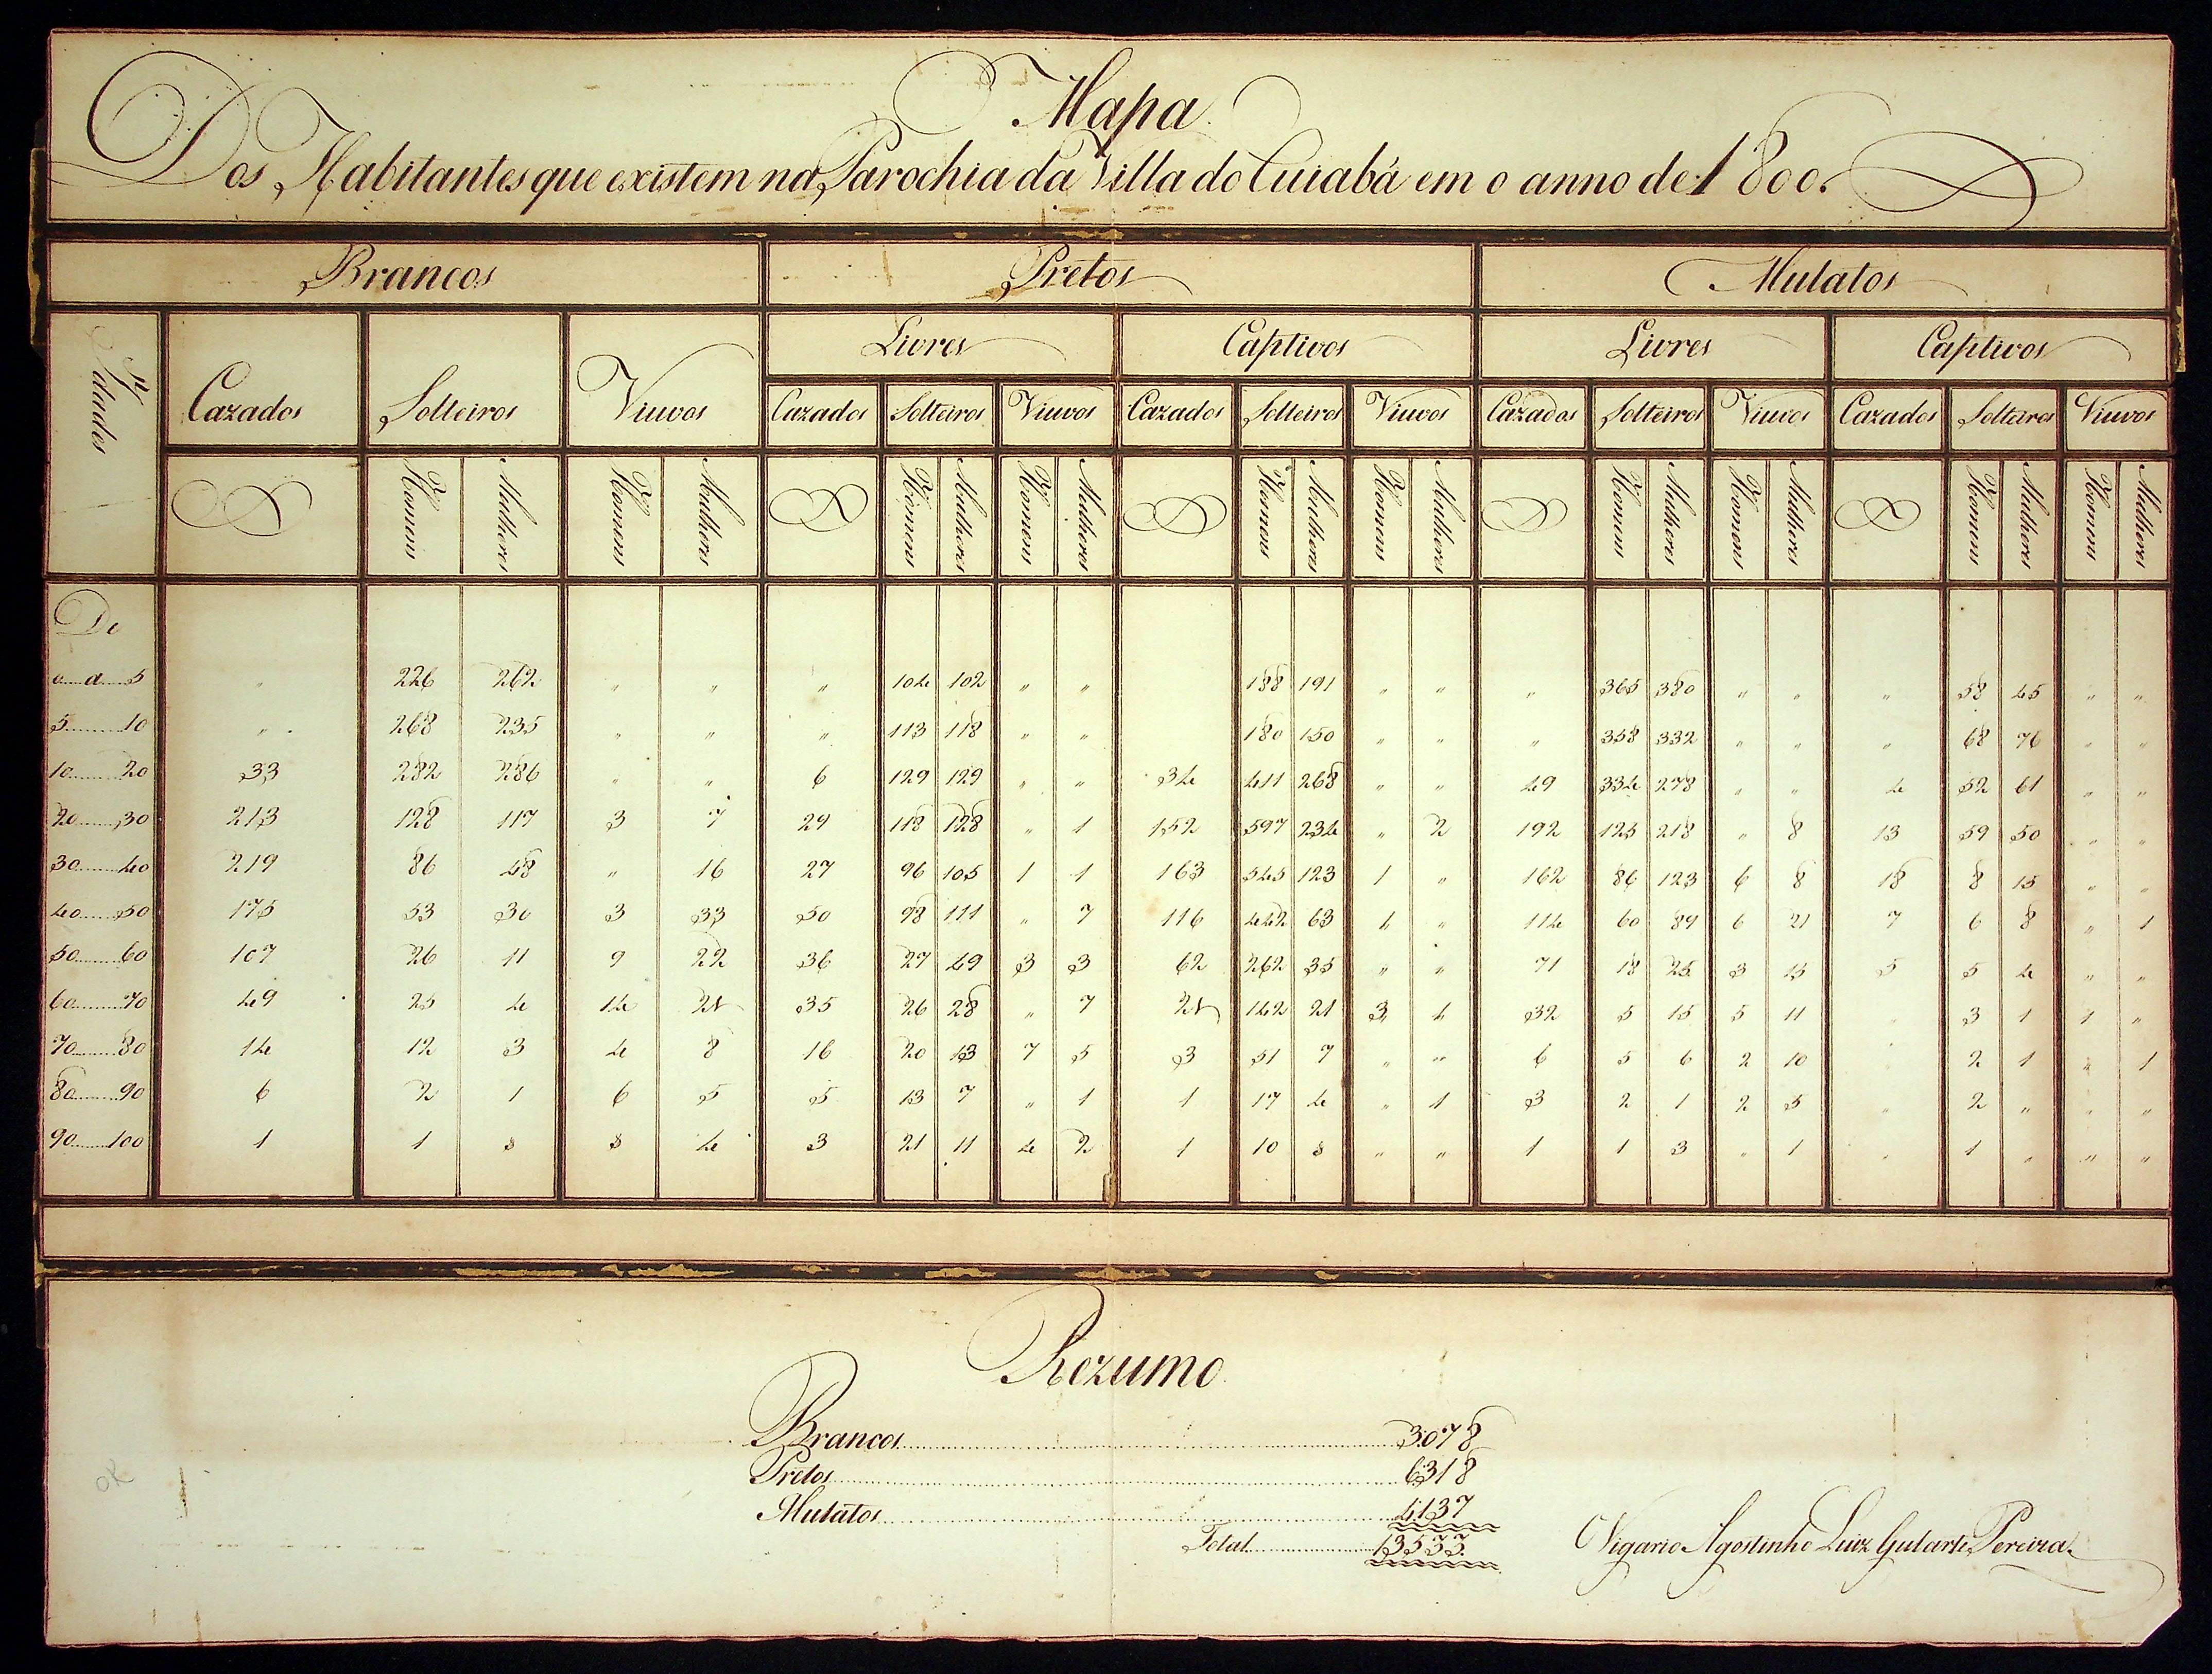 Mapa
Dos Habitantes que existem na Parochia da Villa do Cuiabá em o anno de 1800.
Brancos Pretos Mulatos
Livres Captivos Livres Captivos
Idades Cazados Solteiros Viuvos Cazados Solteiros Viuvos Cazados Solteiros Viuvos Cazados Solteiros Viuvos Cazados Solteiros Viuvos
Homens Mulheres Homens Mulheres Homens Mulheres Homens Mulheres Homens Mulheres Homens Mulheres Homens Mulheres Homens Mulheres Homens Mulheres Homens Mulheres
De
0 a 5 " 226 262 " " " 104 102 " " 188 191 " " " 365 380 " " " 58 45 " "
5 10 " 268 235 " " " 113 118 " " 180 150 " " " 358 332 " " " 68 76 " "
10 20 33 282 286 " " 6 129 129 " " 34 411 268 " " 49 334 278 " " 4 52 61 " "
20 30 213 128 117 3 7 29 118 128 " 1 152 597 234 " 2 192 125 218 " 8 13 59 50 " "
30 40 219 86 48 " 16 27 96 105 1 1 163 545 123 1 " 162 86 123 6 8 18 8 15 " "
40 50 175 53 30 3 33 50 98 111 " 7 116 442 63 " 114 60 89 6 21 7 6 8 " 1
50 60 107 26 11 9 22 36 27 49 3 3 62 262 35 " " 71 18 25 3 15 5 5 4 " "
60 70 49 25 4 14 35 26 28 " 7 142 21 3 32 5 15 5 11 " 3 1 1 "
70 80 14 12 3 4 8 16 20 13 7 5 3 51 7 " " 6 5 6 2 10 " 2 1 " 1
80 90 6 2 1 6 5 5 13 7 " 1 1 17 4 " 1 3 2 1 2 5 " 2 " " "
90 100 1 1 4 3 21 11 4 2 1 10 " " 1 1 3 " 1 " 1 " " "
Rezumo
Brancos 3078
Pretos 6318
Mulatos 4137
Total 13533
Vigario Agostinho Luiz Gularte Pereira
OK